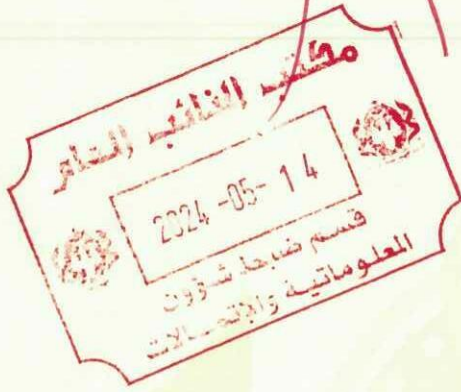 مكتب النائب العام
2024 -05- 14
قسم ضبط شؤون
المعلوماتية والإتصالات